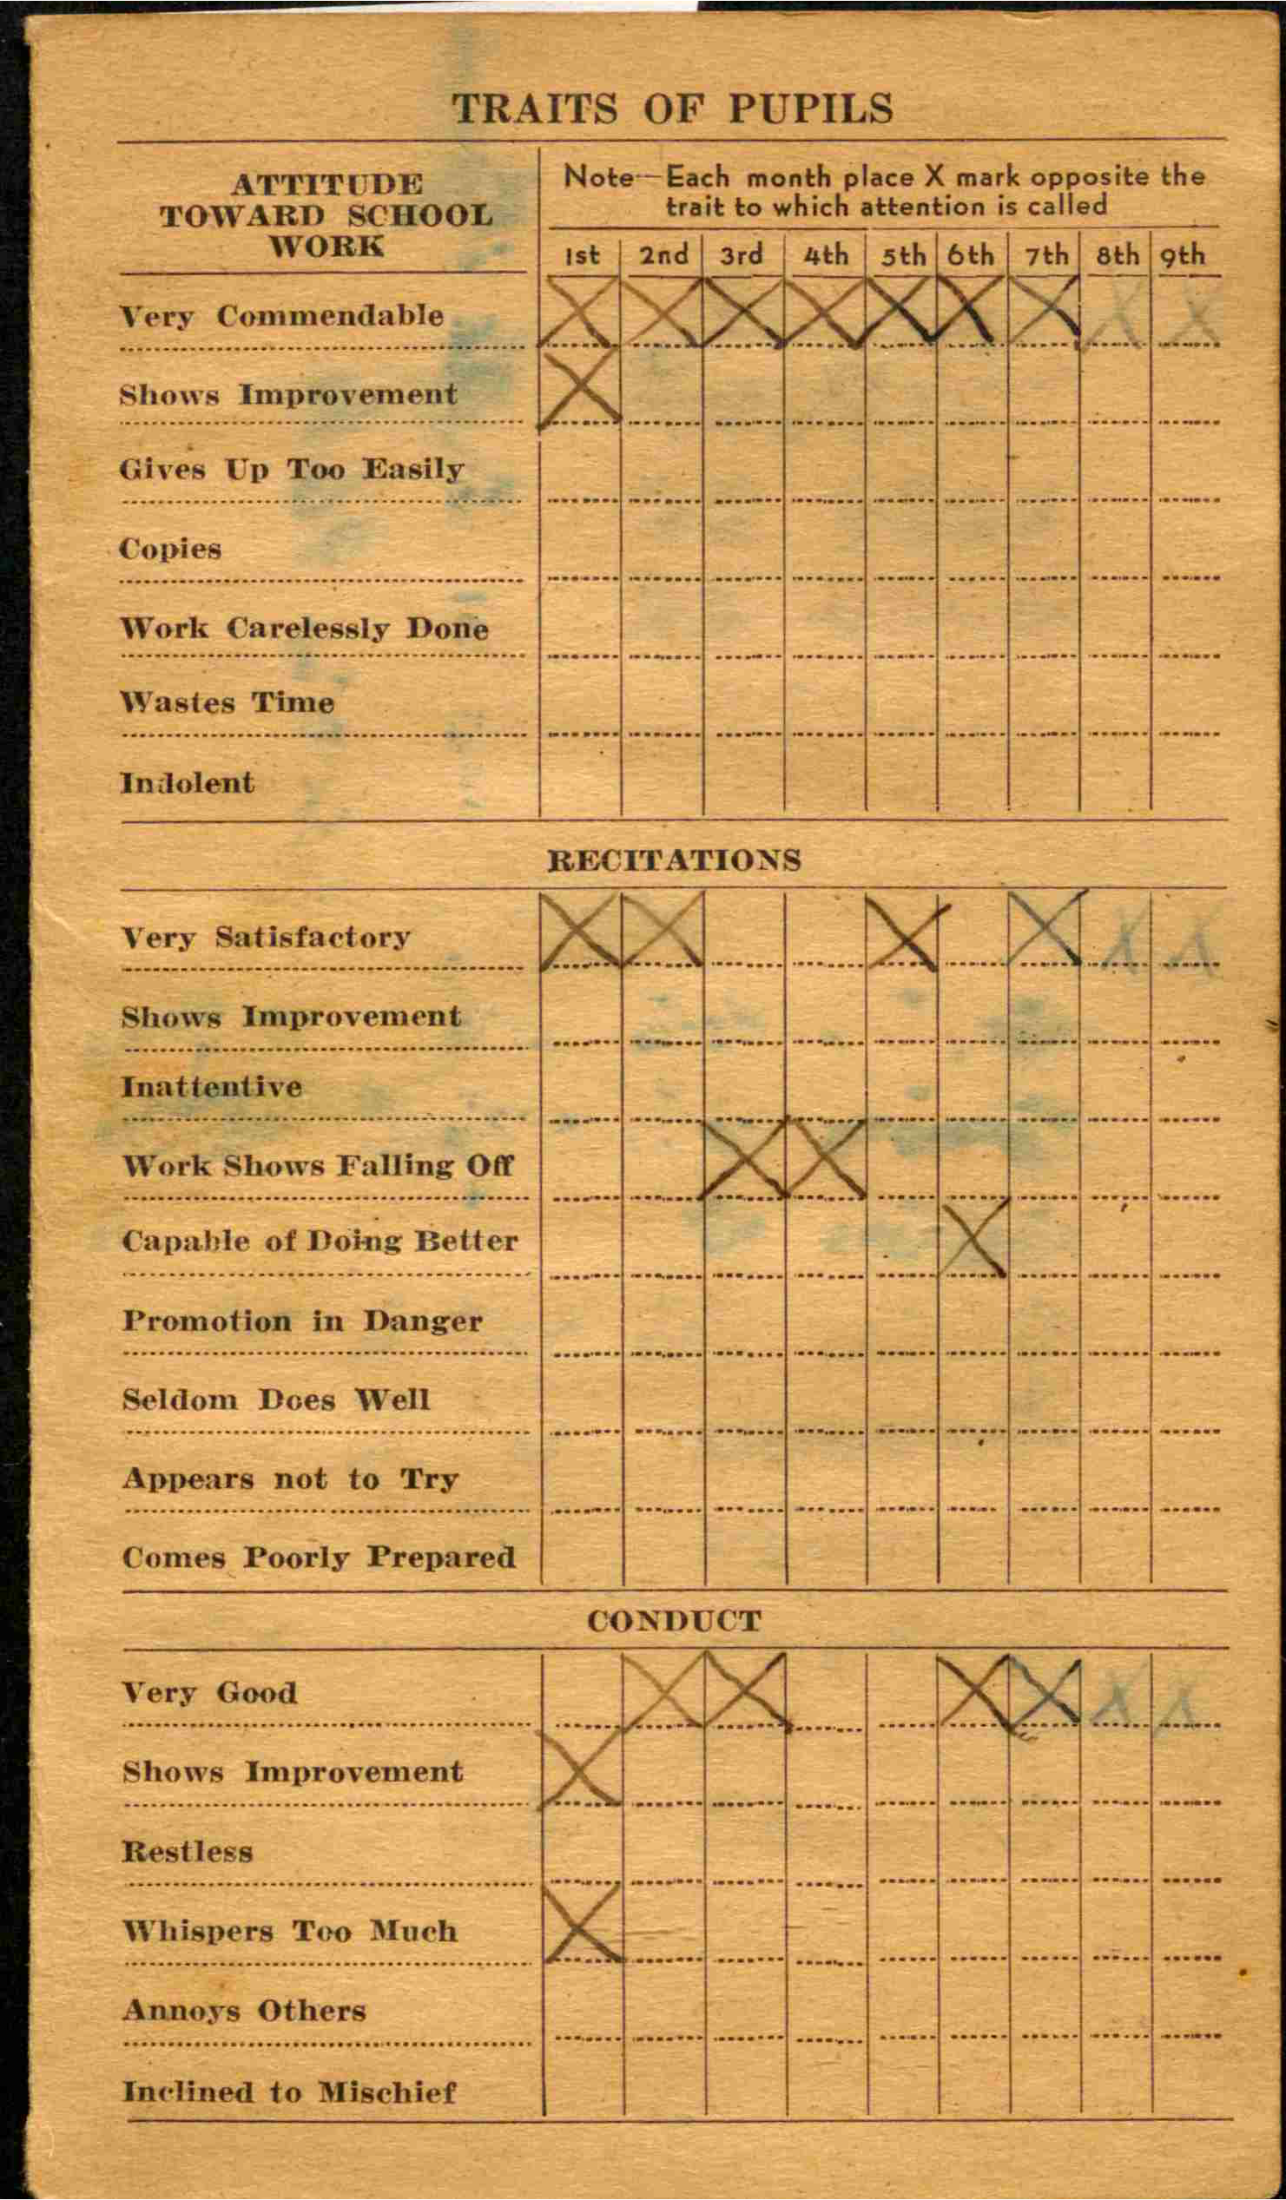 TRAITS OF PUPILS
ATTITUDE
TOWARD SCHOOL
WORK
Note—Each month place X mark opposite the
trait to which attention is called
1st 2nd 3rd 4th 5th 6th 7th 8th 9th
Very Commendable X X X X X X X X X
Shows Improvement X
Gives Up Too Easily
Copies
Work Carelessly Done
Wastes Time
Indolent
RECITATIONS
Very Satisfactory X X X X X X
Shows Improvement
Inattentive
Work Shows Falling Off X X
Capable of Doing Better X
Promotion in Danger
Seldom Does Well
Appears not to Try
Comes Poorly Prepared
CONDUCT
Very Good X X X X X X
Shows Improvement X
Restless
Whispers Too Much X
Annoys Others
Inclined to Mischief